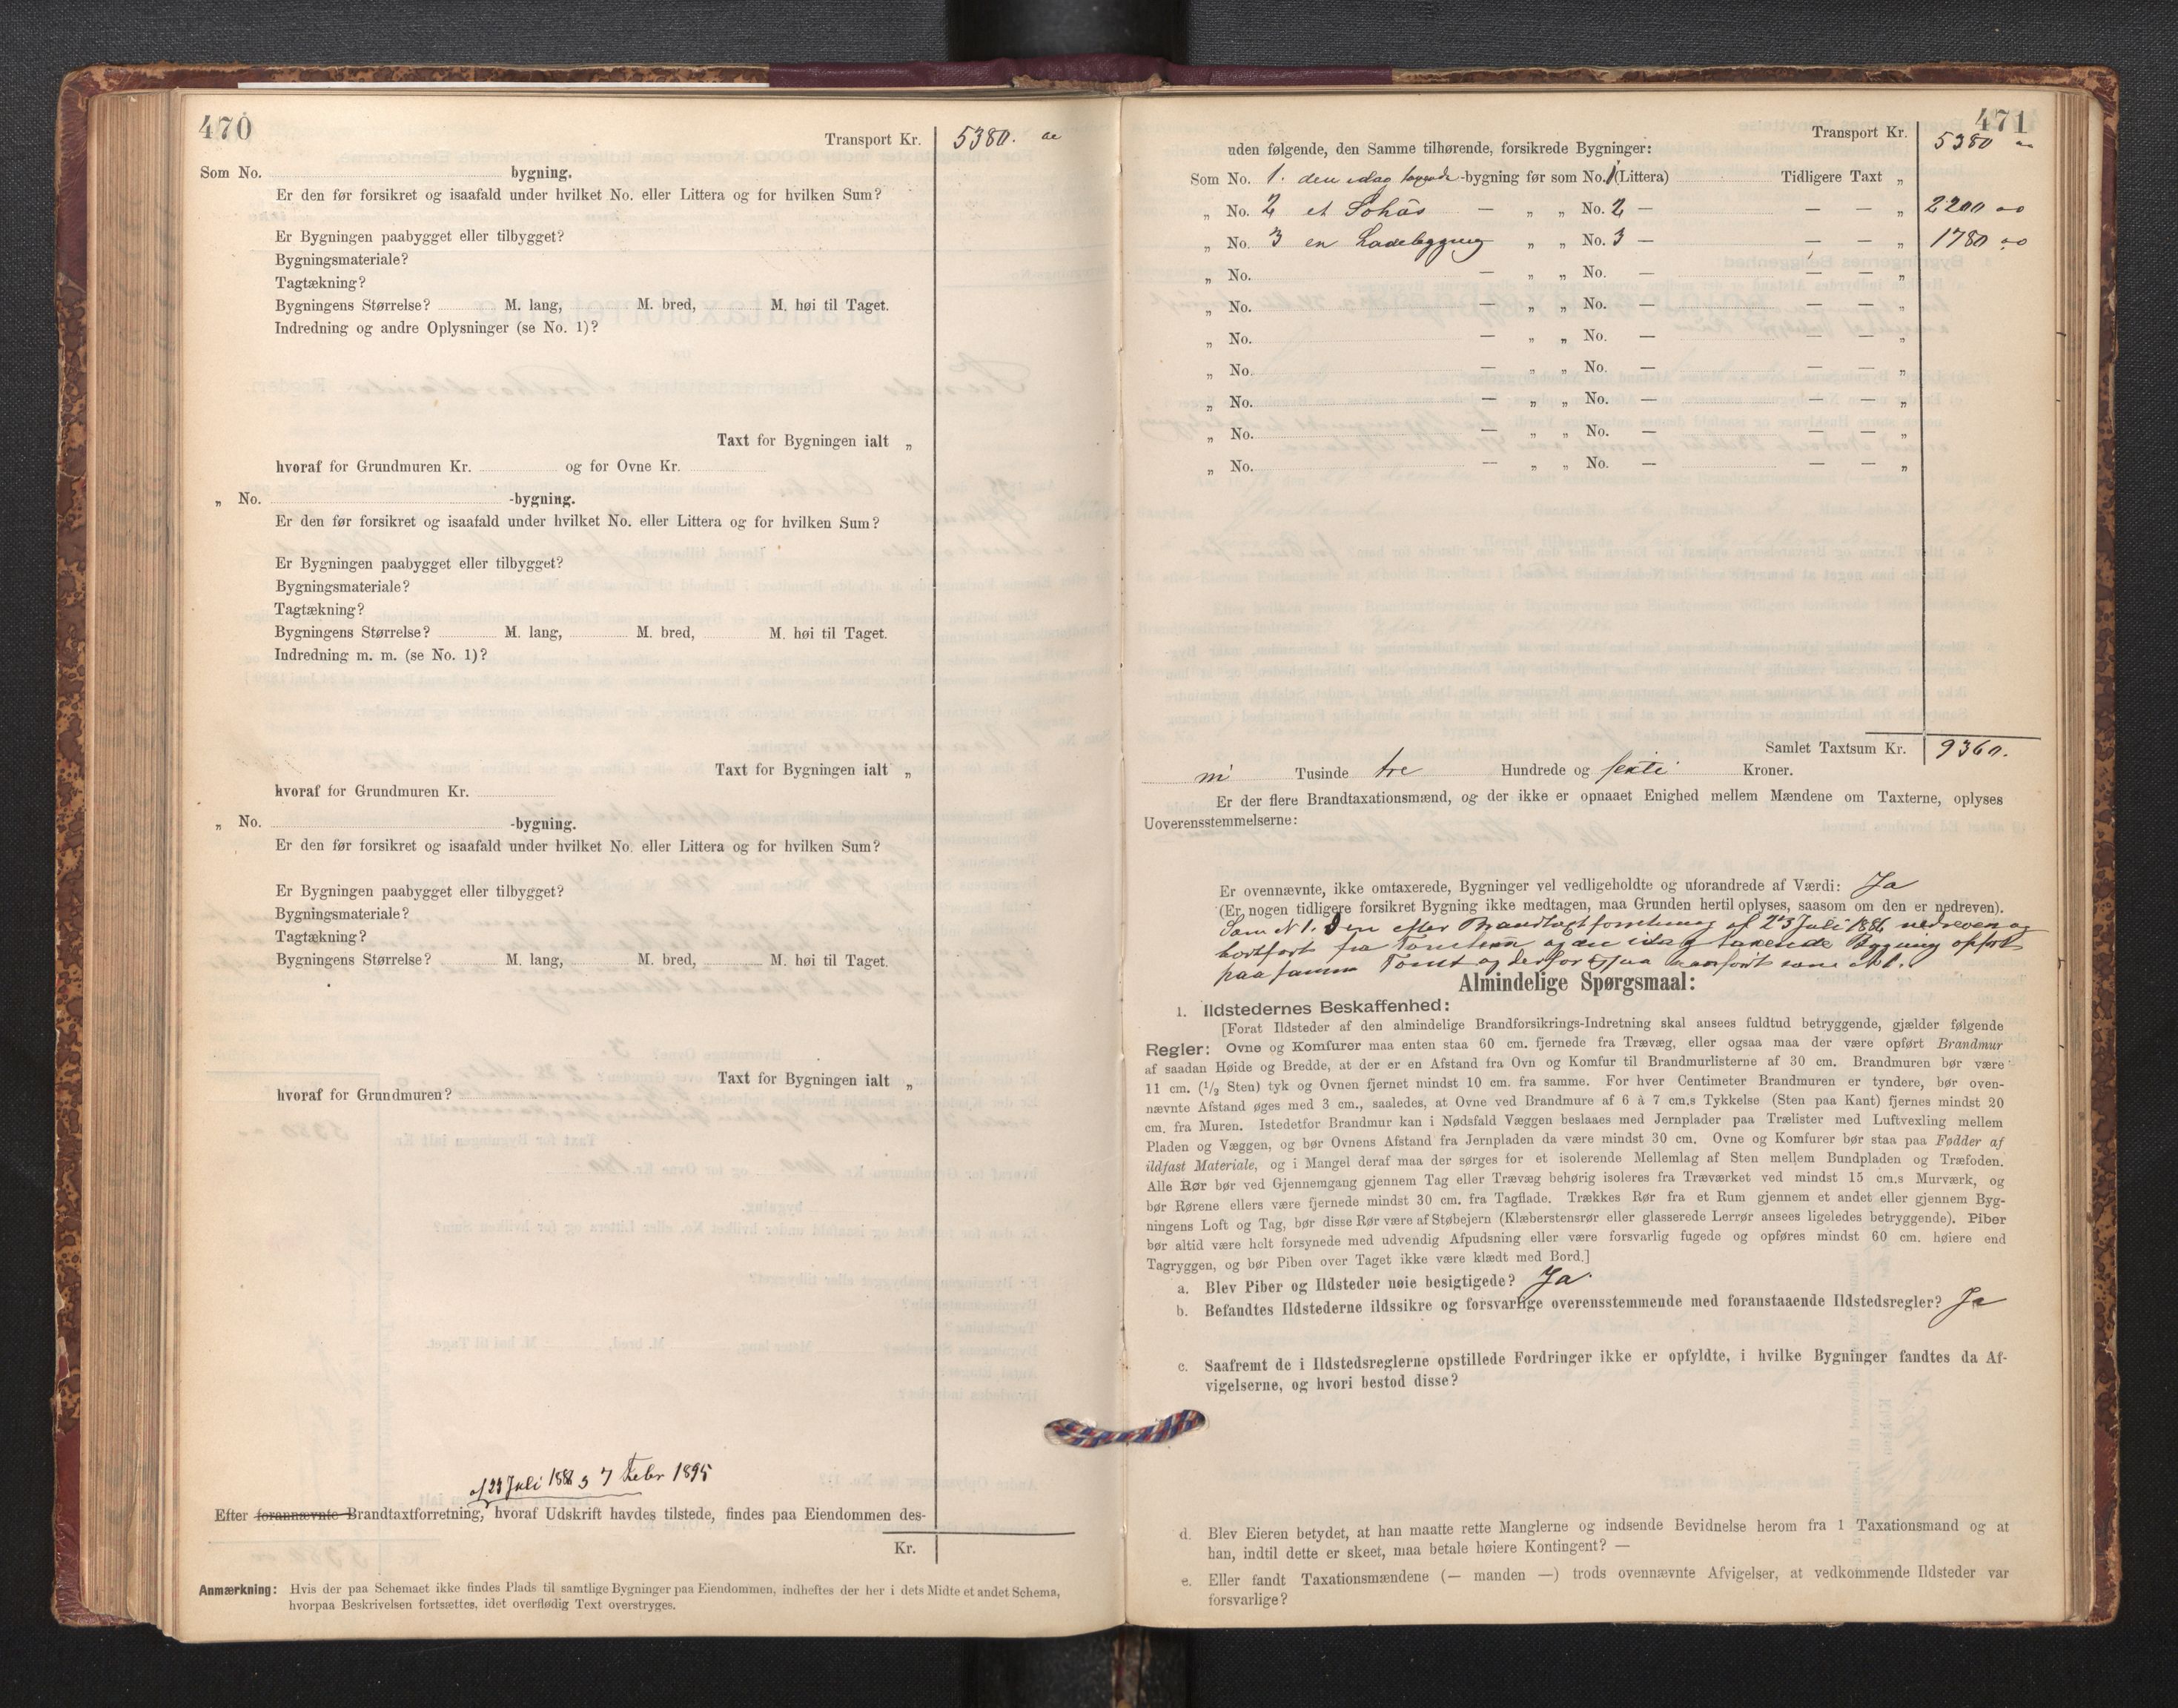 470
Transport Kr. 5380.
Som No. bygning.
Er den før forsikret og isaafald under hvilket No. eller Littera og for hvilken Sum?
Er Bygningen paabygget eller tilbygget?
Bygningsmateriale?
Tagtækning?
Bygningens Størrelse? M. lang, M. bred, M. høi til Taget.
Indredning og andre Oplysninger (se No. 1)?
Taxt for Bygningen ialt „
hvoraf for Grundmuren Kr. og for Ovne Kr.
„ No. -bygning.
Er den før forsikret og isaafald under hvilket No. eller Littera og for hvilken Sum?
Er Bygningen paabygget eller tilbygget?
Bygningsmateriale?
Tagtækning?
Bygningens Størrelse? M. lang, M. bred, M. høi til Taget.
Indredning m. m. (se No. 1)?
Taxt for Bygningen ialt „
hvoraf for Grundmuren Kr.
„ No. -bygning.
Er den før forsikret og isaafald under hvilket No. eller Littera og for hvilken Sum?
Er Bygningen paabygget eller tilbygget?
Bygningsmateriale?
Tagtækning?
Bygningens Størrelse? M. lang, M. bred, M. høi til Taget.
Taxt for Bygningen ialt „
hvoraf for Grundmuren?
af 23 Juli 1886 & 7 Febr 1895
Efter forannævnte Brandtaxtforretning, hvoraf Udskrift havdes tilstede, findes paa Eiendommen des-
Kr.
Anmærkning: Hvis der paa Schemaet ikke findes Plads til samtlige Bygninger paa Eiendommen, indheftes der her i dets Midte et andet Schema,
hvorpaa Beskrivelsen fortsættes, idet overflødig Text overstryges.
471
Transport Kr. 5380
uden følgende, den Samme tilhørende, forsikrede Bygninger:
Som No. 1. den idag -bygning før som No. 1 (Littera) Tidligere Taxt „
„ No. 2 et — „ „ No. 2 — — — „ 2200 00
„ No. 3 en Ladebygning „ „ No. 3 — — — „ 1780 00
„ No. — „ „ No. — — — „
„ No. — „ „ No. — — — „
„ No. — „ „ No. — — — „
„ No. — „ „ No. — — — „
„ No. — „ „ No. — — — „
„ No. — „ „ No. — — — „
„ No. — „ „ No. — — — „
Samlet Taxtsum Kr. 9360.
ni Tusinde tre Hundrede og sexti Kroner.
Er der flere Brandtaxationsmænd, og der ikke er opnaaet Enighed mellem Mændene om Taxterne, oplyses
Uoverensstemmelserne:
Er ovennævnte, ikke omtaxerede, Bygninger vel vedligeholdte og uforandrede af Værdi: Ja
(Er nogen tidligere forsikret Bygning ikke medtagen, maa Grunden hertil oplyses, saasom om den er nedreven).
Som N 1. Den efter Brandtaxtforretning af 23 Juli 1886 nedreven og
bortført fra Tomten og den idag Bygning opført
paa samme Tomt og derfor ogsaa anført som N 1.
Almindelige Spørgsmaal:
1. Ildstedernes Beskaffenhed:
[Forat Ildsteder af den almindelige Brandforsikrings-Indretning skal ansees fuldtud betryggende, gjælder følgende
Regler: Ovne og Komfurer maa enten staa 60 cm. fjernede fra Trævæg, eller ogsaa maa der være opført Brandmur
af saadan Høide og Bredde, at der er en Afstand fra Ovn og Komfur til Brandmurlisterne af 30 cm. Brandmuren bør være
11 cm. (1/2 Sten) tyk og Ovnen fjernet mindst 10 cm. fra samme. For hver Centimeter Brandmuren er tyndere, bør oven-
nævnte Afstand øges med 3 cm., saaledes, at Ovne ved Brandmure af 6 à 7 cm.s Tykkelse (Sten paa Kant) fjernes mindst 20
cm. fra Muren. Istedetfor Brandmur kan i Nødsfald Væggen beslaaes med Jernplader paa Trælister med Luftvexling mellem
Pladen og Væggen, og bør Ovnens Afstand fra Jernpladen da være mindst 30 cm. Ovne og Komfurer bør staa paa Fødder af
ildfast Materiale, og i Mangel deraf maa der sørges for et isolerende Mellemlag af Sten mellem Bundpladen og Træfoden.
Alle Rør bør ved Gjennemgang gjennem Tag eller Trævæg behørig isoleres fra Træværket ved mindst 15 cm.s Murværk, og
bør Rørene ellers være fjernede mindst 30 cm. fra Tagflade. Trækkes Rør fra et Rum gjennem et andet eller gjennem Byg-
ningens Loft og Tag, bør disse Rør være af Støbejern (Klæberstensrør eller glasserede Lerrør ansees ligeledes betryggende). Piber
bør altid være helt forsynede med udvendig Afpudsning eller være forsvarlig fugede og opføres mindst 60 cm. høiere end
Tagryggen, og bør Piben over Taget ikke være klædt med Bord.]
a. Blev Piber og Ildsteder nøie besigtigede? Ja
b. Befandtes Ildstederne ildssikre og forsvarlige overensstemmende med foranstaaende Ildstedsregler? Ja
c. Saafremt de i Ildstedsreglerne opstillede Fordringer ikke er opfyldte, i hvilke Bygninger fandtes da Af-
vigelserne, og hvori bestod disse?
d. Blev Eieren betydet, at han maatte rette Manglerne og indsende Bevidnelse herom fra 1 Taxationsmand og at
han, indtil dette er skeet, maa betale høiere Kontingent? —
e. Eller fandt Taxationsmændene (— manden —) trods ovennævnte Afvigelser, at vedkommende Ildsteder var
forsvarlige?